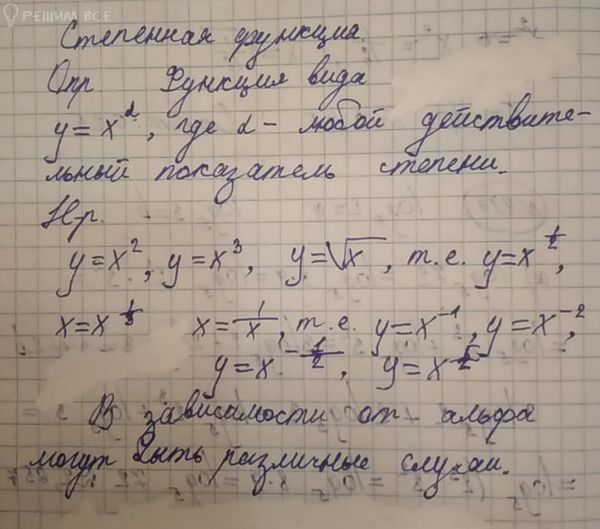 РЕШИМ ВСЁ
Степенная функция.
Опр. Функция вида
y = x^α, где α - любой действите-
льный показатель степени.
Нр.
y = x², y = x³, y = √x, т.е. y = x^(1/2),
x = x^(1/3) x = 1/x, т.е. y = x⁻¹, y = x⁻²,
y = x^(-1/2), y = x
В зависимости от альфа
могут быть различные случаи.